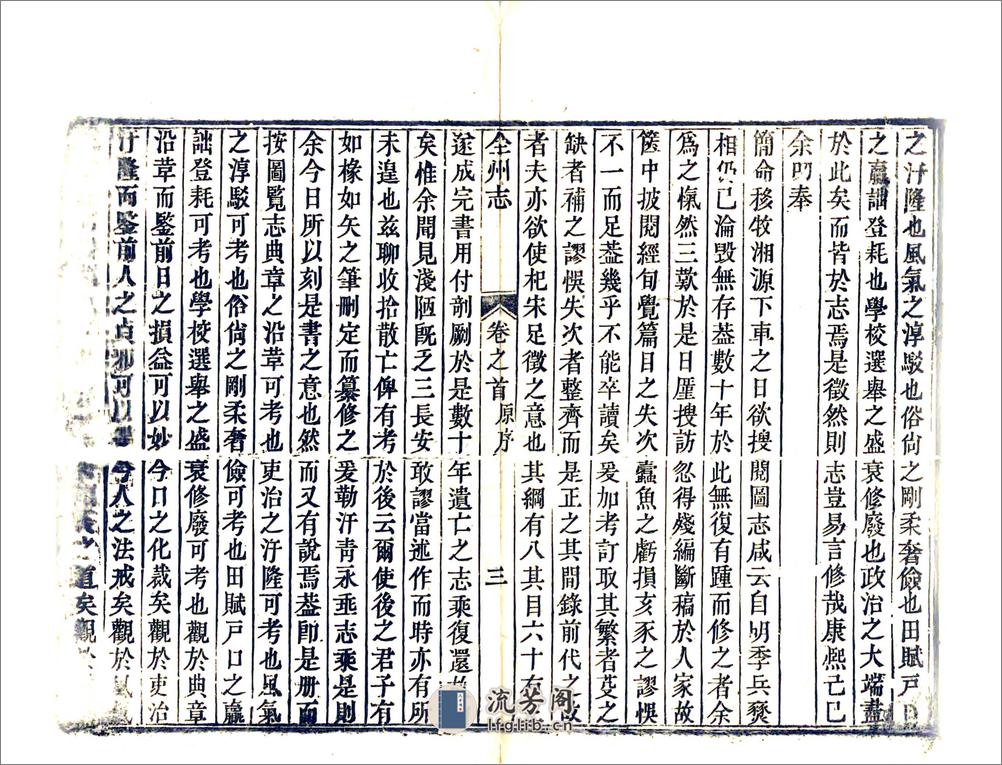 之汙隆也風氣之淳駁也俗尙之剛柔奢儉也田賦戸口
之贏詘登耗也學校選舉之盛衰修廢也政治之大端盡
於此矣而皆於志焉是徵然則志豈易言修哉康熙己巳
余叨奉
簡命移牧湘源下車之日欲搜閱圖志咸云自明季兵燹
相仍已淪毀無存葢數十年於此無復有踵而修之者余
爲之愾然三歎於是日厪搜訪忽得殘編斷稿於人家故
篋中披閱經旬覺篇目之失次蠹魚之虧損亥豕之謬悞
不一而足葢幾乎不能卒讀矣爰加考訂取其繁者芟之
缺者補之謬悞失次者整齊而是正之其開錄前代之故
者夫亦欲使杞宋足徵之意也其綱有八其目六十有
全州志 卷之首 原序 三
遂成完書用付剞劂於是數十年遺亡之志乘復還故
矣惟余聞見淺陋旣乏三長安敢謬當述作而時亦有所
未遑也兹聊收拾散亡俾有考於後云爾使後之君子有
如椽如矢之筆刪定而纂修之爰勒汗靑永垂志乘是則
余今日所以刻是書之意也然而又有說焉葢卽是册而
按圖覽志典章之沿革可考也吏治之汙隆可考也風氣
之淳駁可考也俗尙之剛柔奢儉可考也田賦戸口之贏
詘登耗可考也學校選舉之盛衰修廢可考也觀於典章
沿革而鑒前日之損益可以妙今日之化裁矣觀於吏治
汙隆而鑒前人之貞邪可以 今人之法戒矣觀於風氣
道矣觀於
流芳阁
lfglib.cn